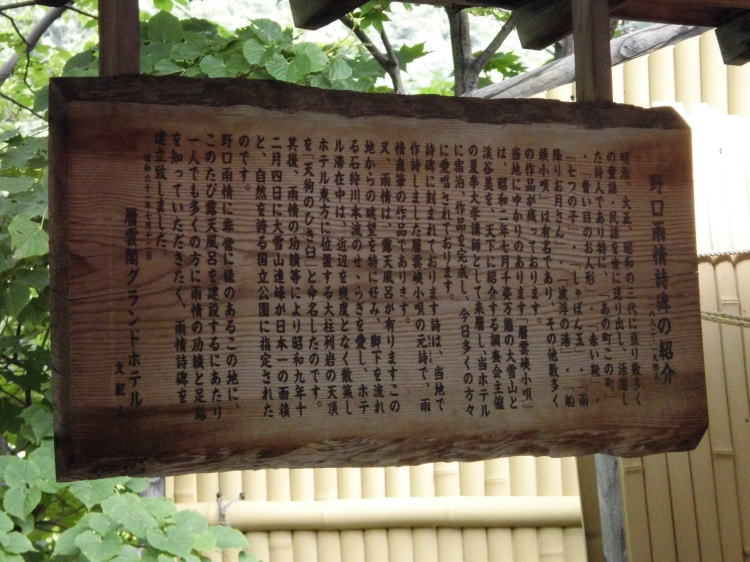 野口雨情詩碑の紹介
(一八八二~一九四五)
明治、大正、昭和の三代に亘り数多く
の童話・民謡を世に送り出し、活躍し
た詩人であり特に、「あの町この町」
・「青い目のお人形」・「赤い靴」・
「七つの子」・「しゃぼん玉」・「雨
降りお月さん」・「波浮の港」・「船
頭小唄」は有名であり、その他数多く
の作品が残っております。
当地にゆかりのあります「層雲峡小唄」
は、昭和二年七月千姿万態の大雪山と
渓谷美を、天下に紹介する調査会主催
の夏季大学講師として来層し、当ホテル
に宿泊、作品を完成し、今日多くの方々
に愛唱されております。
詩碑に刻まれております詩は、当地で
作詩しました層雲峡小唄の元詩で、雨
情直筆の作品であります。
又、雨情は、露天風呂が有りますこの
地からの眺望を特に好み、脚下を流れ
る石狩川本流のせゝらぎを愛し、ホテ
ル滞在中は、近辺を幾度となく散策し
ホテル東方に位置する大柱列岩の天頂
を「天狗のひき臼」と命名したのです。
其後、雨情の功績等により昭和九年十
二月四日に大雪山連峰が日本一の面積
と、自然を誇る国立公園に指定された
のです。
野口雨情に非常に縁のあるこの地に、
このたび露天風呂を建設するにあたり
一人でも多くの方に雨情の功績と足跡
を知っていただきたく、雨情詩碑を
建立致しました。
昭和六十一年七月二十二日
層雲閣グランドホテル
支配人